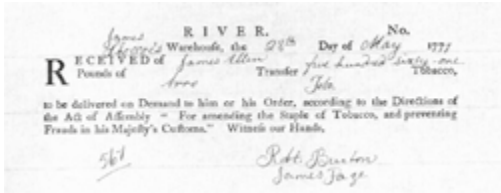 James RIVER. No.
Warehouse, the 28th Day of May 1771
RECEIVED of James Allen five hundred sixty-one
Pounds of Transfer Tobacco,
to be delivered on Demand to him or his Order, according to the Directions of
the Act of Assembly " For amending the Staple of Tobacco, and preventing
Frauds in his Majesty's Customs." Witness our Hands,
561 Robt. Burton
James